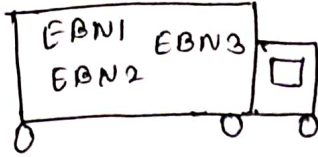 EBN1
EBN3
EBN2